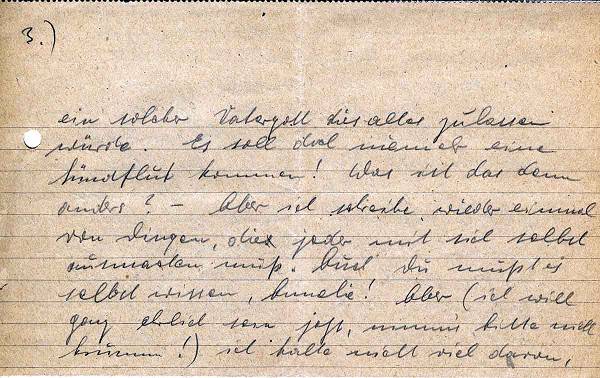 3.)
ein solcher Vatergott dies alles zulassen
würde. Es soll doch niemals eine
Sündflut kommen! Was ist das denn
anders? – Aber ich schreibe wieder einmal
von Dingen, die jeder mit sich selbst
ausmachen muß. Auch du mußt es
selbst wissen, Annelie! Aber (ich will
ganz ehrlich sein jetzt, nimms bitte nicht
krumm!) ich halte nicht viel davon,